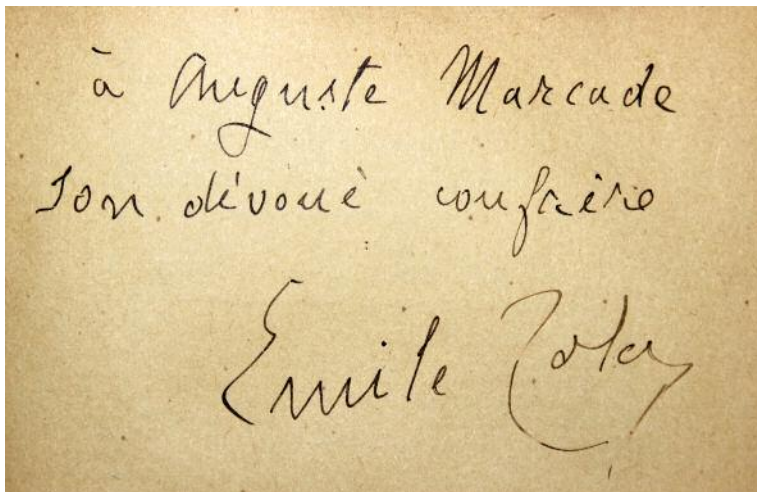 à Auguste Marcade
son dévoué confrère
Emile Zola